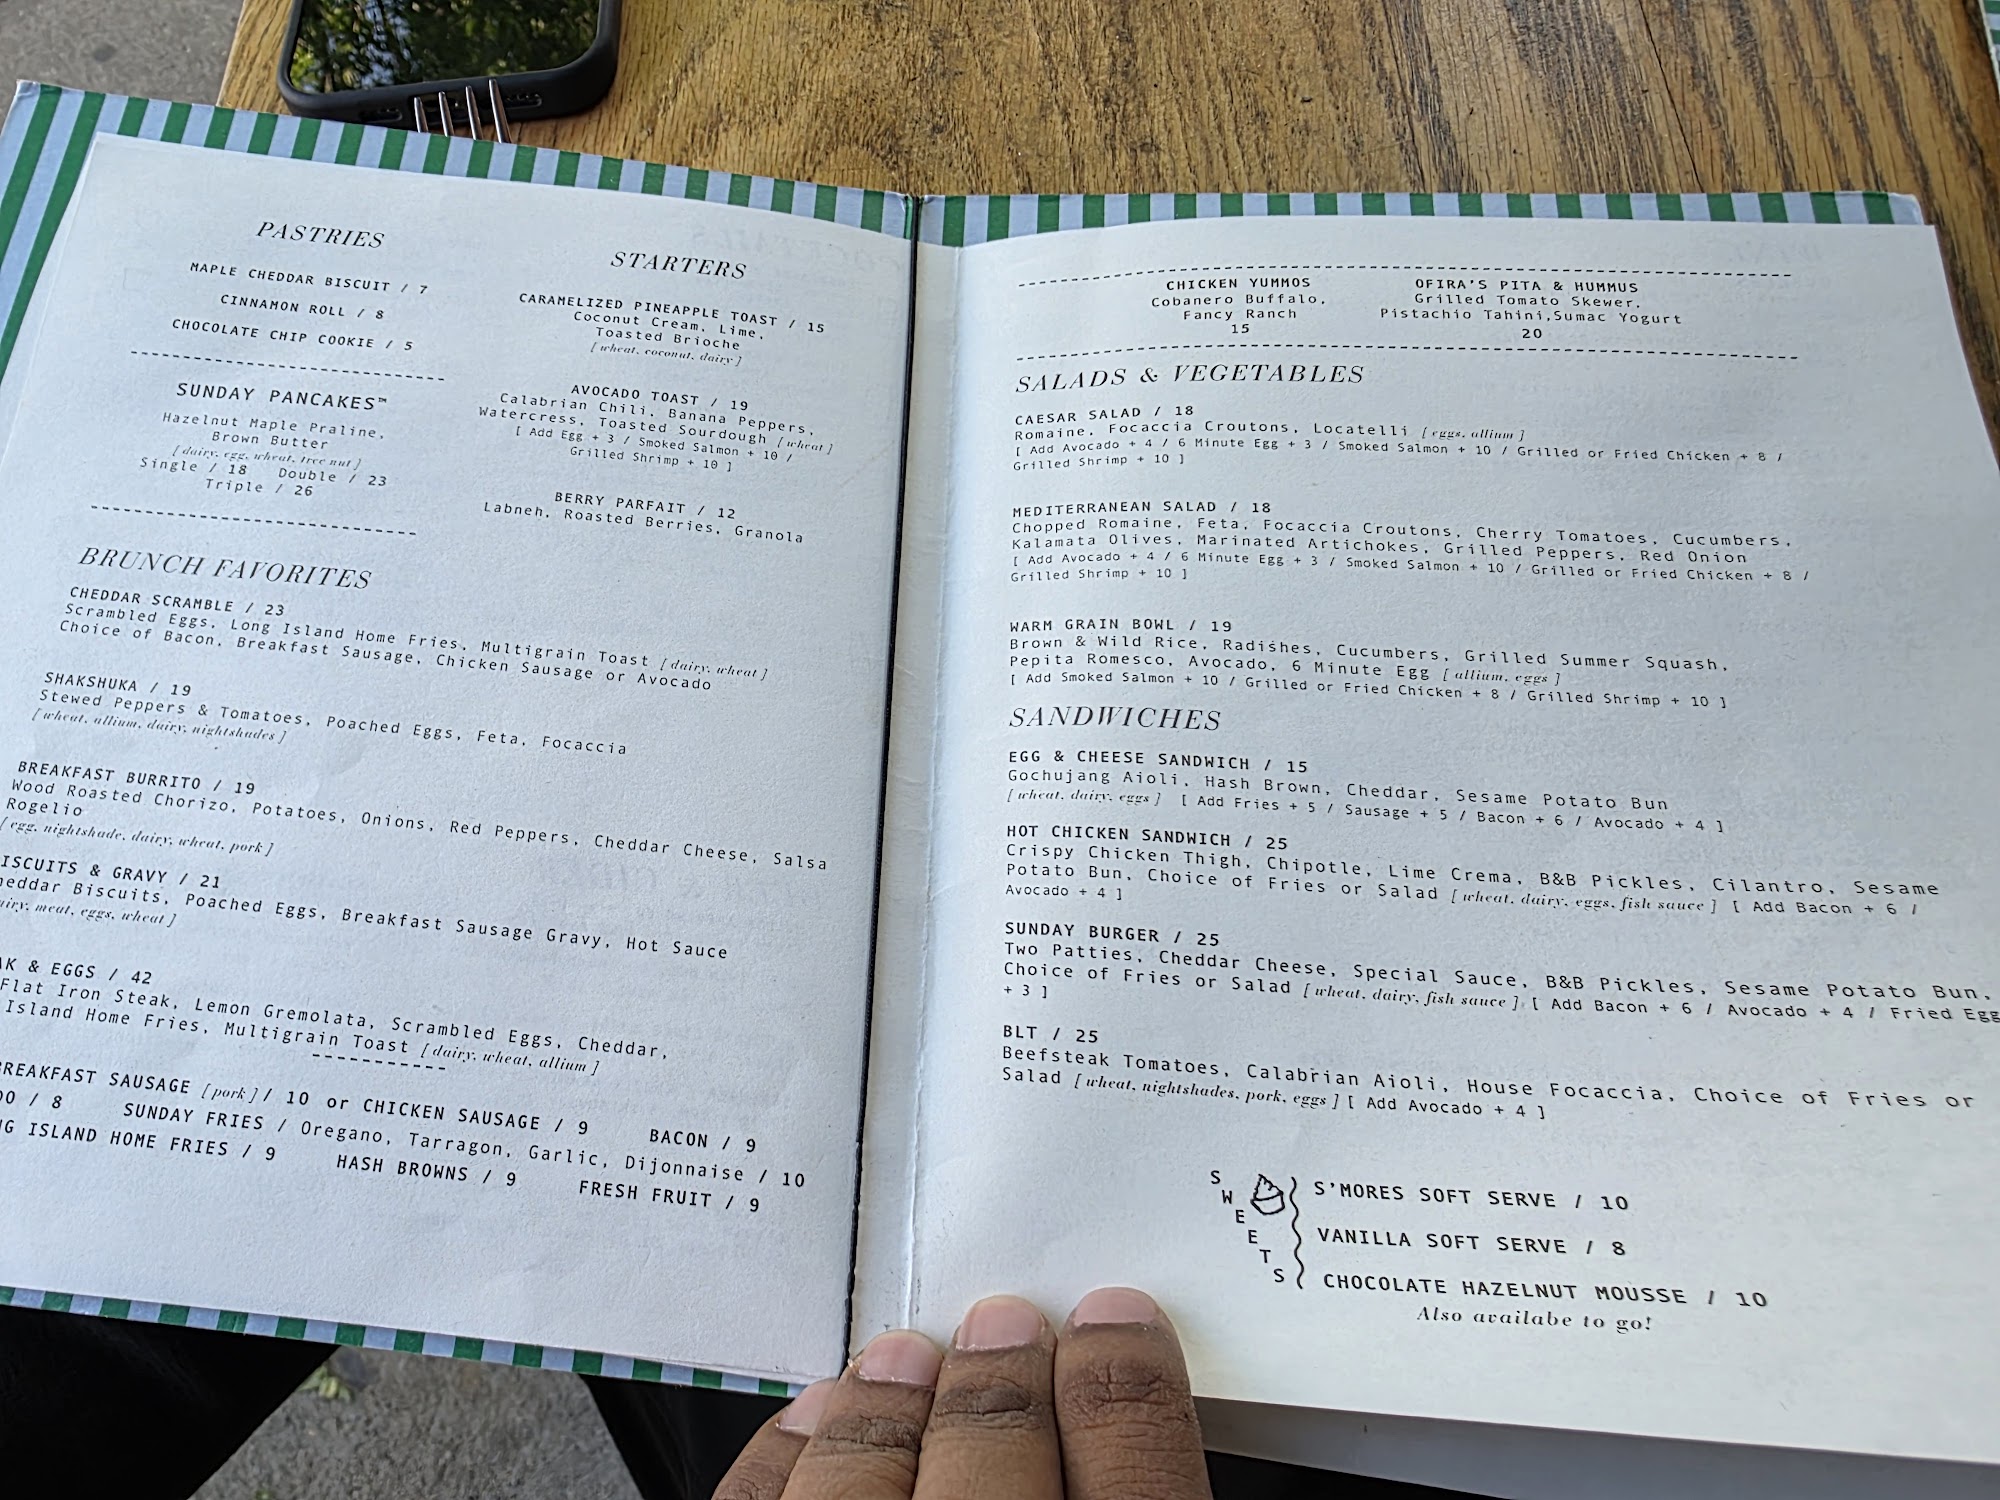 PASTRIES
MAPLE CHEDDAR BISCUIT / 7
CINNAMON ROLL / 8
CHOCOLATE CHIP COOKIE / 5
SUNDAY PANCAKES™
Hazelnut Maple Praline,
Brown Butter
[ dairy, egg, wheat, tree nut ]
Single / 18 Double / 23
Triple / 26
STARTERS
CARAMELIZED PINEAPPLE TOAST / 15
Coconut Cream, Lime,
Toasted Brioche
[ wheat, coconut, dairy ]
AVOCADO TOAST / 19
Calabrian Chili, Banana Peppers,
Watercress, Toasted Sourdough [ wheat ]
[ Add Egg + 3 / Smoked Salmon + 10 /
Grilled Shrimp + 10 ]
BERRY PARFAIT / 12
Labneh, Roasted Berries, Granola
BRUNCH FAVORITES
CHEDDAR SCRAMBLE / 23
Scrambled Eggs, Long Island Home Fries, Multigrain Toast [ dairy, wheat ]
Choice of Bacon, Breakfast Sausage, Chicken Sausage or Avocado
SHAKSHUKA / 19
Stewed Peppers & Tomatoes, Poached Eggs, Feta, Focaccia
[ wheat, allium, dairy, nightshades ]
BREAKFAST BURRITO / 19
Wood Roasted Chorizo, Potatoes, Onions, Red Peppers, Cheddar Cheese, Salsa
Rogelio
[ egg, nightshade, dairy, wheat, pork ]
ISCUITS & GRAVY / 21
heddar Biscuits, Poached Eggs, Breakfast Sausage Gravy, Hot Sauce
airy, meat, eggs, wheat ]
AK & EGGS / 42
Flat Iron Steak, Lemon Gremolata, Scrambled Eggs, Cheddar,
Island Home Fries, Multigrain Toast [ dairy, wheat, allium ]
BREAKFAST SAUSAGE [ pork ] / 10 or CHICKEN SAUSAGE / 9 BACON / 9
DO / 8 SUNDAY FRIES / Oregano, Tarragon, Garlic, Dijonnaise / 10
NG ISLAND HOME FRIES / 9 HASH BROWNS / 9 FRESH FRUIT / 9
CHICKEN YUMMOS
Cobanero Buffalo,
Fancy Ranch
15
OFIRA'S PITA & HUMMUS
Grilled Tomato Skewer,
Pistachio Tahini,Sumac Yogurt
20
SALADS & VEGETABLES
CAESAR SALAD / 18
Romaine, Focaccia Croutons, Locatelli [ eggs, allium ]
[ Add Avocado + 4 / 6 Minute Egg + 3 / Smoked Salmon + 10 / Grilled or Fried Chicken + 8 /
Grilled Shrimp + 10 ]
MEDITERRANEAN SALAD / 18
Chopped Romaine, Feta, Focaccia Croutons, Cherry Tomatoes, Cucumbers,
Kalamata Olives, Marinated Artichokes, Grilled Peppers, Red Onion
[ Add Avocado + 4 / 6 Minute Egg + 3 / Smoked Salmon + 10 / Grilled or Fried Chicken + 8 /
Grilled Shrimp + 10 ]
WARM GRAIN BOWL / 19
Brown & Wild Rice, Radishes, Cucumbers, Grilled Summer Squash,
Pepita Romesco, Avocado, 6 Minute Egg [ allium, eggs ]
[ Add Smoked Salmon + 10 / Grilled or Fried Chicken + 8 / Grilled Shrimp + 10 ]
SANDWICHES
EGG & CHEESE SANDWICH / 15
Gochujang Aioli, Hash Brown, Cheddar, Sesame Potato Bun
[ wheat, dairy, eggs ] [ Add Fries + 5 / Sausage + 5 / Bacon + 6 / Avocado + 4 ]
HOT CHICKEN SANDWICH / 25
Crispy Chicken Thigh, Chipotle, Lime Crema, B&B Pickles, Cilantro, Sesame
Potato Bun, Choice of Fries or Salad [ wheat, dairy, eggs, fish sauce ] [ Add Bacon + 6 /
Avocado + 4 ]
SUNDAY BURGER / 25
Two Patties, Cheddar Cheese, Special Sauce, B&B Pickles, Sesame Potato Bun,
Choice of Fries or Salad [ wheat, dairy, fish sauce ], [ Add Bacon + 6 / Avocado + 4 / Fried Egg
+ 3 ]
BLT / 25
Beefsteak Tomatoes, Calabrian Aioli, House Focaccia, Choice of Fries or
Salad [ wheat, nightshades, pork, eggs ] [ Add Avocado + 4 ]
SWEETS
S'MORES SOFT SERVE / 10
VANILLA SOFT SERVE / 8
CHOCOLATE HAZELNUT MOUSSE / 10
Also availabe to go!